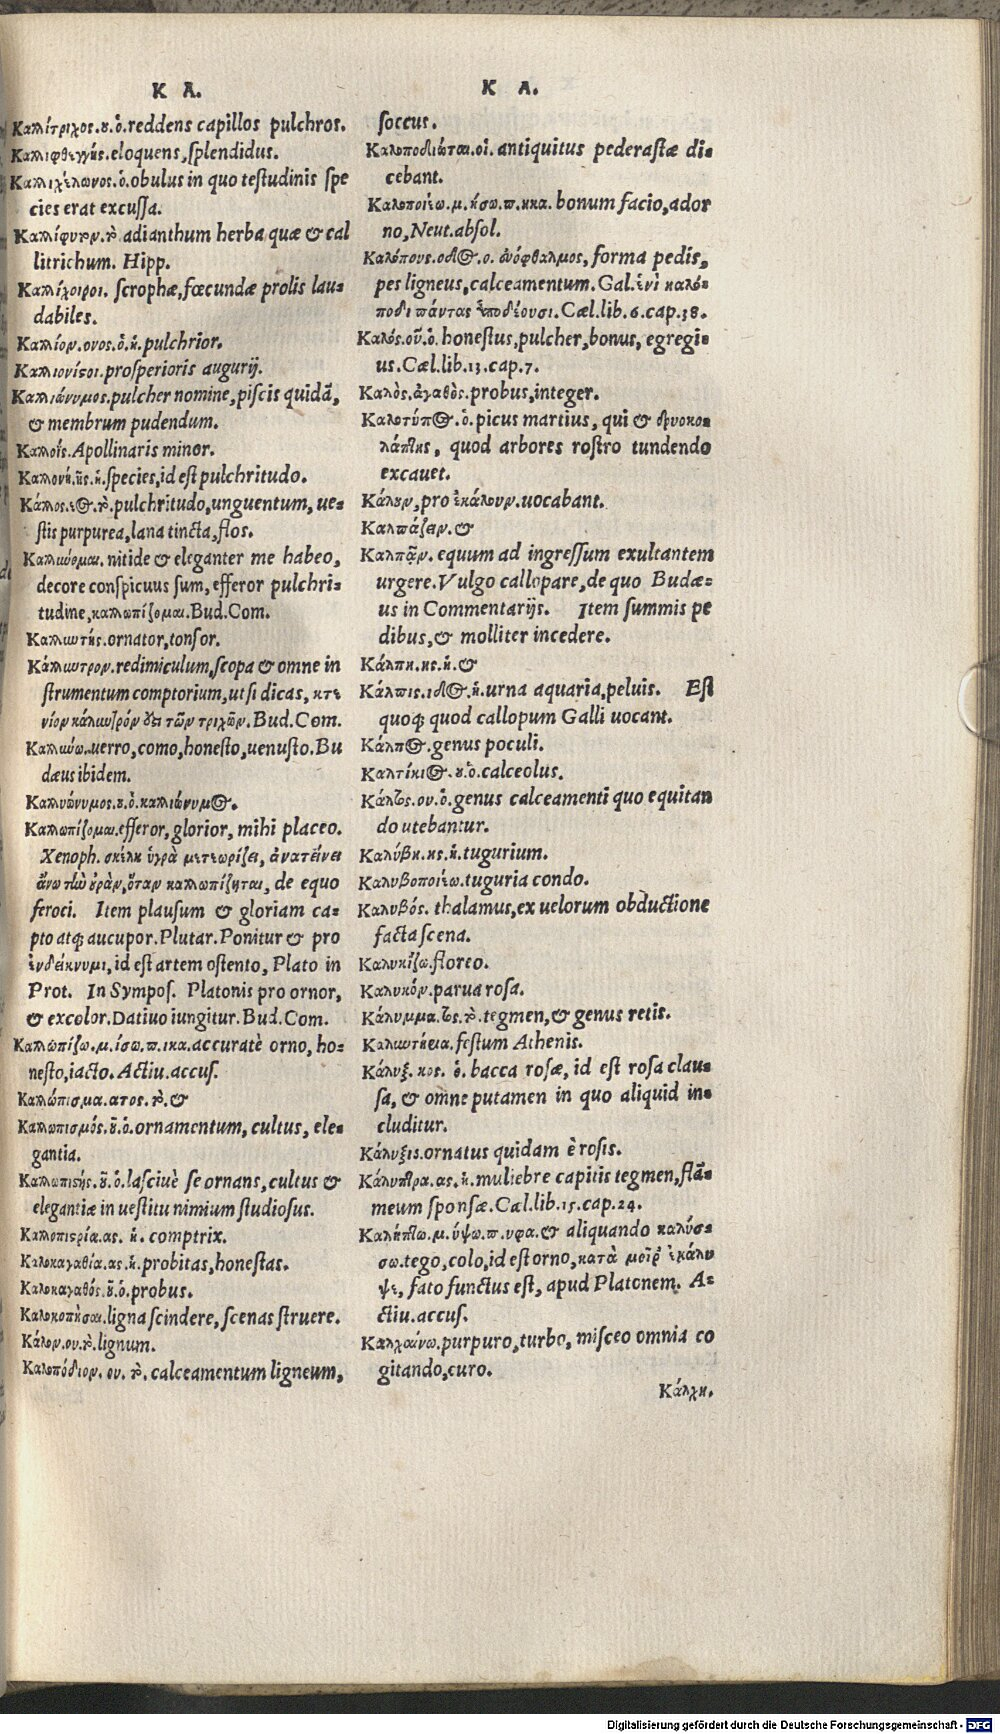 K A.
Καλλίτριχος.ου.ὁ.reddens capillos pulchros.
Καλλιφθεγγής.eloquens,ſplendidus.
Καλλιχέλωνος.ὁ.obulus in quo teſtudinis ſpe
cies erat excuſſa.
Καλλίφυτον.τὸ.adianthum herba quæ & cal
litrichum. Hipp.
Καλλίχοιροι. ſcrophæ,fœcundæ prolis lau-
dabiles.
Καλλίον.ονος.ὁ.ἡ.pulchrior.
Καλλιονίτοι.proſperioris augurij.
Καλλιώνυμος.pulcher nomine,piſcis quidā,
& membrum pudendum.
Καλλοῖς.Apollinaris minor.
Καλλονή.ῆς.ἡ.ſpecies,id eſt pulchritudo.
Κάλλος.εος.τὸ.pulchritudo,unguentum,ue-
ſtis purpurea,lana tincta,flos.
Καλλύομαι.nitide & eleganter me habeo,
decore conſpicuus ſum,efferor pulchri-
tudine,καλλωπίζομαι.Bud.Com.
Καλλυντής.ornator,tonſor.
Κάλλυντρον.redimiculum,ſcopa & omne in
ſtrumentum comptorium,ut ſi dicas, κτε
νίον κάλλυντρόν ἐστι τῶν τριχῶν.Bud.Com.
Καλλύω.uerro,como,honeſto,uenuſto.Bu
dæus ibidem.
Καλλυώνυμος.ου.ὁ.καλλιώνυμος.
Καλλωπίζομαι.efferor,glorior, mihi placeo.
Xenoph. σκέλη ὑγρὰ μετεωρίζει, ἀνατείνει
ἄνω τὴν οὐρὰν,ὅταν καλλωπίζηται, de equo
feroci. Item plauſum & gloriam ca-
pto atq; aucupor.Plutar.Ponitur & pro
ἐνδείκνυμι,id eſt artem oſtento, Plato in
Prot. In Sympoſ. Platonis pro ornor,
& excolor.Datiuo iungitur.Bud.Com.
Καλλωπίζω.μ.ίσω.π.ικα.accuratè orno, ho-
neſto,iacto. Actiu.accuſ.
Καλλώπισμα.ατος.τὸ.&
Καλλωπισμός.οῦ.ὁ.ornamentum, cultus, ele-
gantia.
Καλλωπιστής.οῦ.ὁ.laſciuè ſe ornans, cultus &
elegantiæ in ueſtitu nimium ſtudioſus.
Καλλοπιστρία.ας. ἡ. comptrix.
Καλοκαγαθία.ας.ἡ.probitas,honeſtas.
Καλοκαγαθός.οῦ.ὁ.probus.
Καλοκοπῆσαι.ligna ſcindere, ſcenas ſtruere.
Κάλον.ου.τὸ.lignum.
Καλοπόδιον.ου.τὸ.calceamentum ligneum,
K A.
ſoccus.
Καλοποδιῶται.οἱ.antiquitus pederaſtæ di-
cebant.
Καλοποιέω.μ.ήσω.π.ηκα.bonum facio,ador
no,Neut.abſol.
Καλόπους.οδος.ο. ἀνόφθαλμος, forma pedis,
pes ligneus,calceamentum.Gal.ἑνὶ καλό-
ποδι πάντας ὑποδέουσι.Cæl.lib.6.cap.38.
Καλός.οῦ.ὁ.honeſtus,pulcher,bonus, egregi-
us.Cæl.lib.13.cap.7.
Καλὸς.ἀγαθὸς.probus,integer.
Καλοτύπος.ὁ.picus martius, qui & δρυοκο-
λάπτης, quod arbores roſtro tundendo
excauet.
Κάλουν,pro ἐκάλουν.uocabant.
Καλπάζειν.&
Καλπᾶν. equum ad ingreſſum exultantem
urgere.Vulgo callopare,de quo Budæ-
us in Commentarijs. Item ſummis pe
dibus,& molliter incedere.
Κάλπη.ης.ἡ.&
Κάλπις.ιδος.ἡ.urna aquaria,peluis. Eſt
quoq; quod callopum Galli uocant.
Κάλπος.genus poculi.
Καλτίκιος.ου.ὁ.calceolus.
Κάλτος.ου.ὁ.genus calceamenti quo equitan
do utebantur.
Καλύβη.ης.ἡ.tugurium.
Καλυβοποιέω.tuguria condo.
Καλυβός. thalamus,ex uelorum obductione
facta ſcena.
Καλυκίζω.floreo.
Καλυκόν.parua roſa.
Κάλυμμα.τος.τὸ.tegmen,& genus retis.
Καλυντήρια.feſtum Athenis.
Κάλυξ. κος. ὁ. bacca roſæ, id eſt roſa clau-
ſa, & omne putamen in quo aliquid in-
cluditur.
Κάλυξις.ornatus quidam è roſis.
Κάλυπτρα.ας.ἡ.muliebre capitis tegmen,flā-
meum ſponſæ.Cæl.lib.15.cap.24.
Καλήπτω.μ.ύψω.π.υφα.& aliquando καλύσ-
σω.tego,colo,id eſt orno,κατὰ μοῖρ' ἐκάλυ
ψε, fato functus eſt, apud Platonem. A-
ctiu.accuſ.
Καλχαίνω.purpuro,turbo, miſceo omnia co
gitando,curo.
Κάλχη.
Digitalisierung gefördert durch die Deutsche Forschungsgemeinschaft - DFG